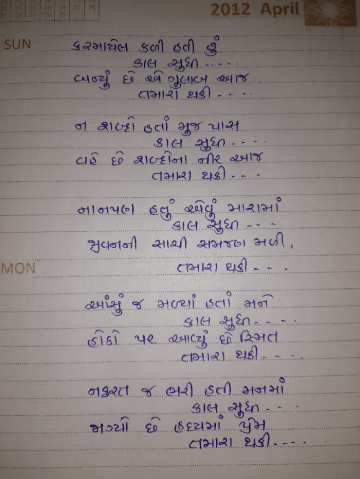 2012 April
SUN
કરમાયેલ કળી હતી હું
કાલ સુધી ....
બન્યું છે એ ગુલાબ આજ
તમારા થકી ....
ન શબ્દો હતાં મુજ પાસ
કાલ સુધી ....
વહે છે શબ્દોના નીર આજ
તમારા થકી ....
નાનપણ હતું એવું મારામાં
કાલ સુધી ....
જીવનની સાચી સમજણ મળી,
MON
તમારા થકી ....
આંસું જ મળ્યાં હતાં મને
કાલ સુધી ....
હોઠો પર આવ્યું છે સ્મિત
તમારા થકી ....
નફરત જ ભરી હતી મનમાં
કાલ સુધી ....
જાગ્યો છે હૃદયમાં પ્રેમ
તમારા થકી ....